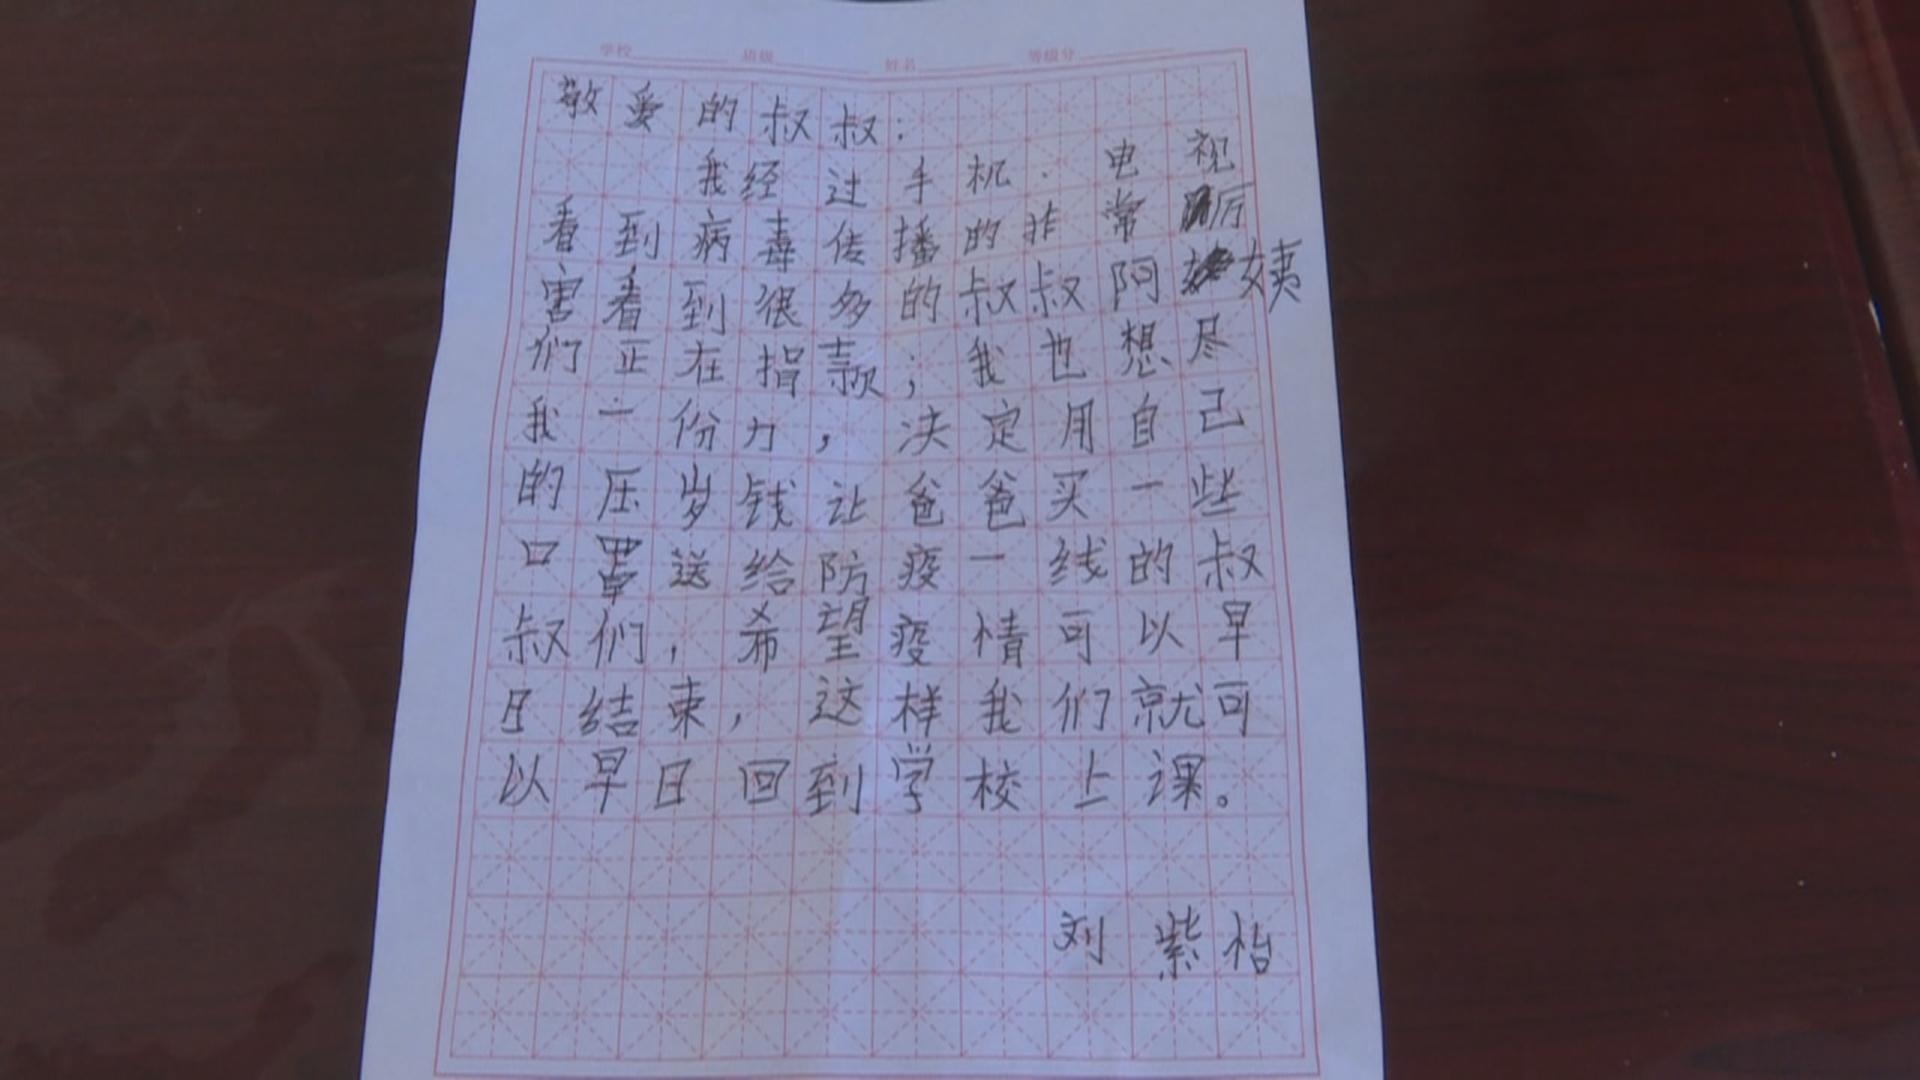 学校 班级 姓名 等级分
敬爱的叔叔：
我经过手机．电视
看到病毒传播的非常厉
害看到很多的叔叔阿姨
们正在捐款；我也想尽
我一份力，决定用自己
的压岁钱让爸爸买一些
口罩送给防疫一线的叔
叔们，希望疫情可以早
日结束，这样我们就可
以早日回到学校上课。
刘紫怡